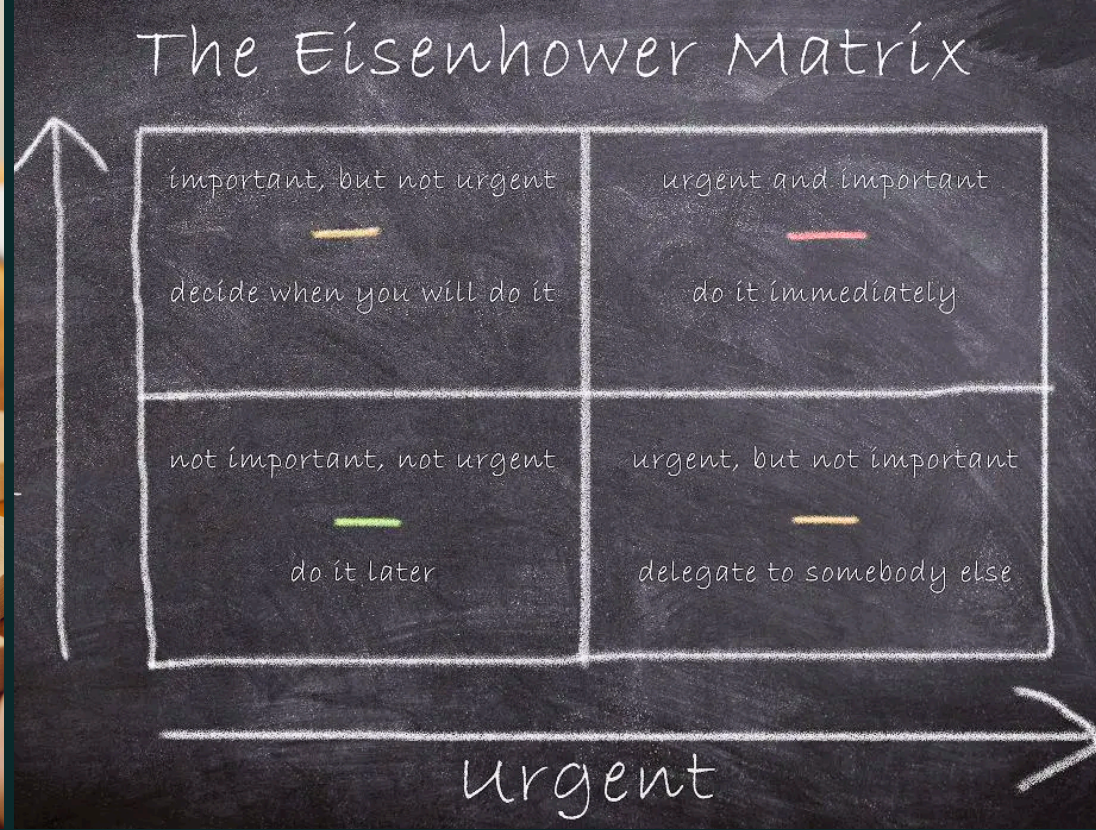 The Eisenhower Matrix
important, but not urgent
decide when you will do it
urgent and important
do it immediately
not important, not urgent
do it later
urgent, but not important
delegate to somebody else
Urgent